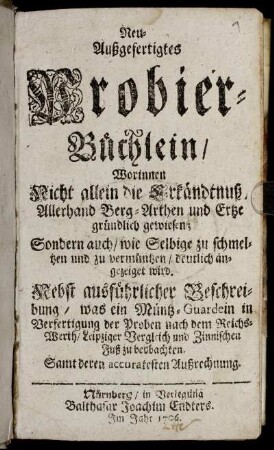 Neu-
Außgefertigtes
Probier-
Büchlein/
Worinnen
Nicht allein die Erkändtnuß,
Allerhand Berg-Arthen und Ertze
gründlich gewiesen;
Sondern auch/ wie Selbige zu schmel-
tzen und zu vermüntzen/ deutlich an-
gezeiget wird.
Nebst ausführlicher Beschrei-
bung/ was ein Müntz-Guardein in
Verfertigung der Proben nach dem Reichs-
Werth/ Leipziger Verglich und Zinnischen
Fuß zu beobachten.
Samt deren accuratesten Außrechnung.
Nürnberg/ in Verlegung
Balthasar Joachim Endters.
Im Jahr 1706.